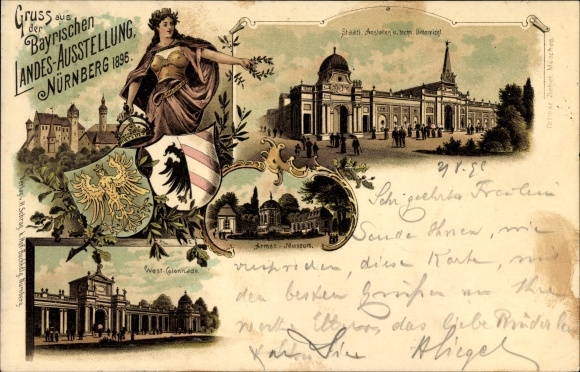 Gruss aus
der
Bayrischen
Landes-Ausstellung,
Nürnberg 1896.
Staatl. Anstalten u. techn. Unterricht
Ottmar Zieher, München.
Armee-Museum.
West-Colonnade.
Verlag v. H. Schrag, k. Hof-Buchhdlg. Nürnberg
Sehr geehrtes Fräulein
Sende Ihnen, wie
versprochen, diese Karte, mit
den besten Grüßen an Ihre
werte Eltern das liebe Brüderlein
Sie